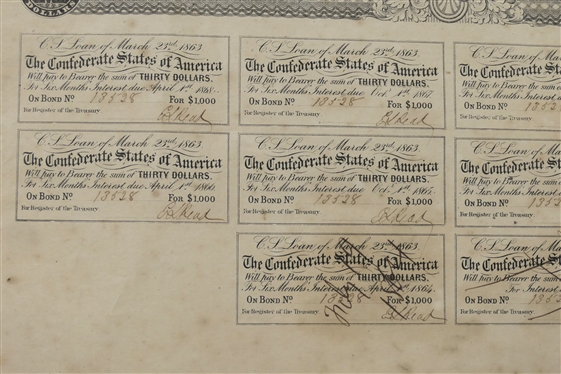 DOLLARS
C.S. Loan of March 23rd. 1863.
The Confederate States of America
Will pay to Bearer the sum of THIRTY DOLLARS.
For Six Months Interest due April 1st 1868.
ON BOND No 13528 FOR $1,000
For Register of the Treasury
C.S. Loan of March 23rd. 1863.
The Confederate States of America
Will pay to Bearer the sum of THIRTY DOLLARS.
For Six Months Interest due Oct. 1st 1867.
ON BOND No 13528 FOR $1,000
For Register of the Treasury
C.S. Loan of Ma
The Confederate Sta
Will pay to Bearer the sum
For Six Months Interest
ON BOND No 1352
For Register of the Treasury
C.S. Loan of March 23rd. 1863.
The Confederate States of America
Will pay to Bearer the sum of THIRTY DOLLARS.
For Six Months Interest due April 1st 1866.
ON BOND No 13528 FOR $1,000
For Register of the Treasury
C.S. Loan of March 23rd. 1863.
The Confederate States of America
Will pay to Bearer the sum of THIRTY DOLLARS.
For Six Months Interest due Oct. 1st 1865.
ON BOND No 13528 FOR $1,000
For Register of the Treasury
C.S. Loan of Ma
The Confederate Sta
Will pay to Bearer the sum
For Six Months Interest
ON BOND No 1352
For Register of the Treasury
C.S. Loan of March 23rd. 1863.
The Confederate States of America
Will pay to Bearer the sum of THIRTY DOLLARS.
For Six Months Interest due April 1st 1864.
ON BOND No 13528 FOR $1,000
For Register of the Treasury
C.S. Loan of Ma
The Confederate Sta
Will pay to Bearer the sum
For Interest du
ON BOND No 1352
For Register of the Treasury